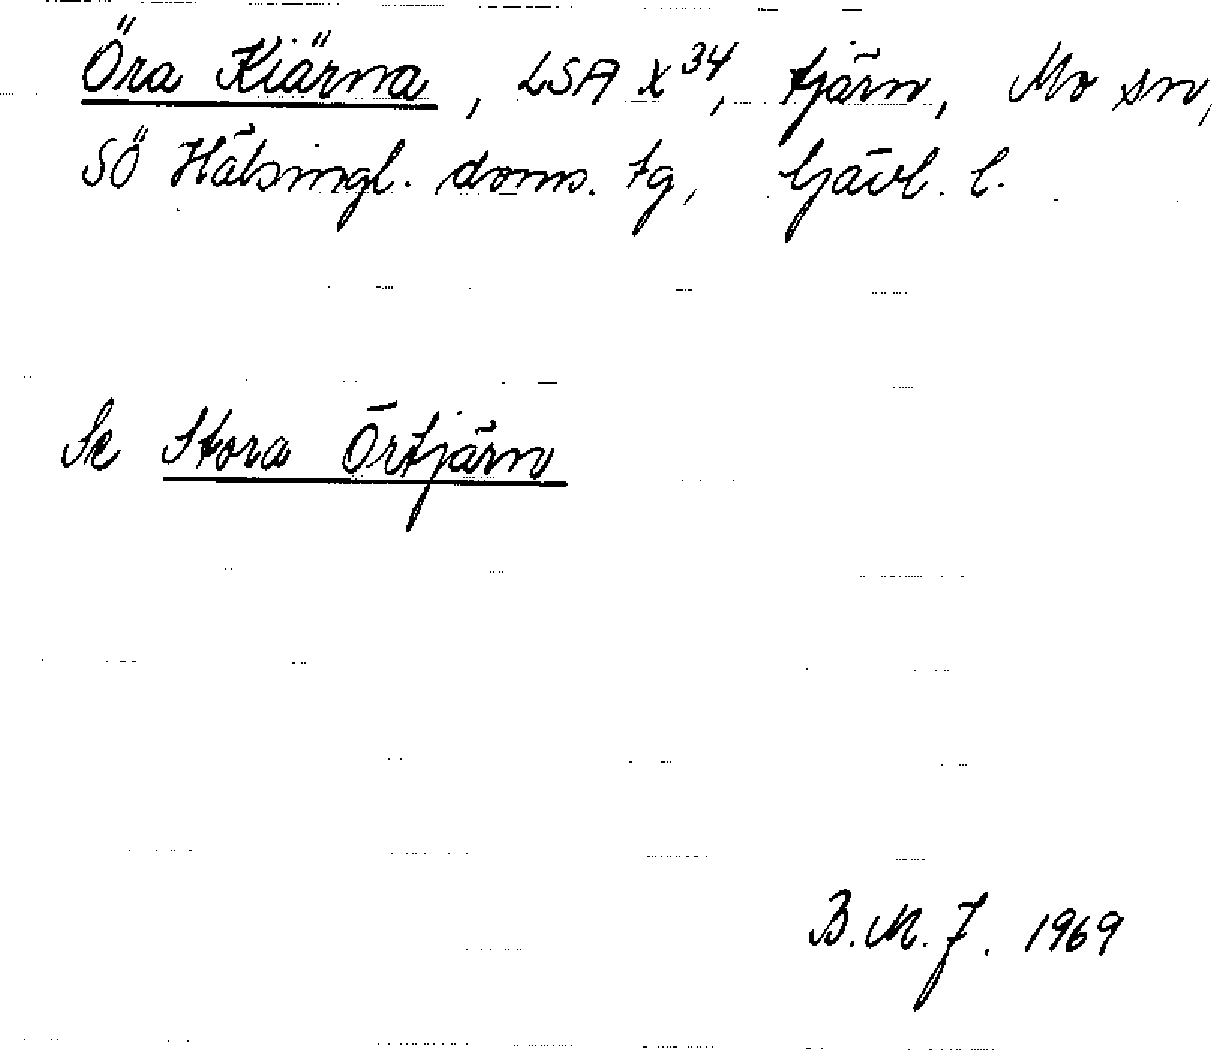 Öra Kiärna, LSA X34, tjärn, Mo sn,
SÖ Hälsingl. doms. tg, Gävl. l.
Se Stora Örtjärn
B.M.J. 1969